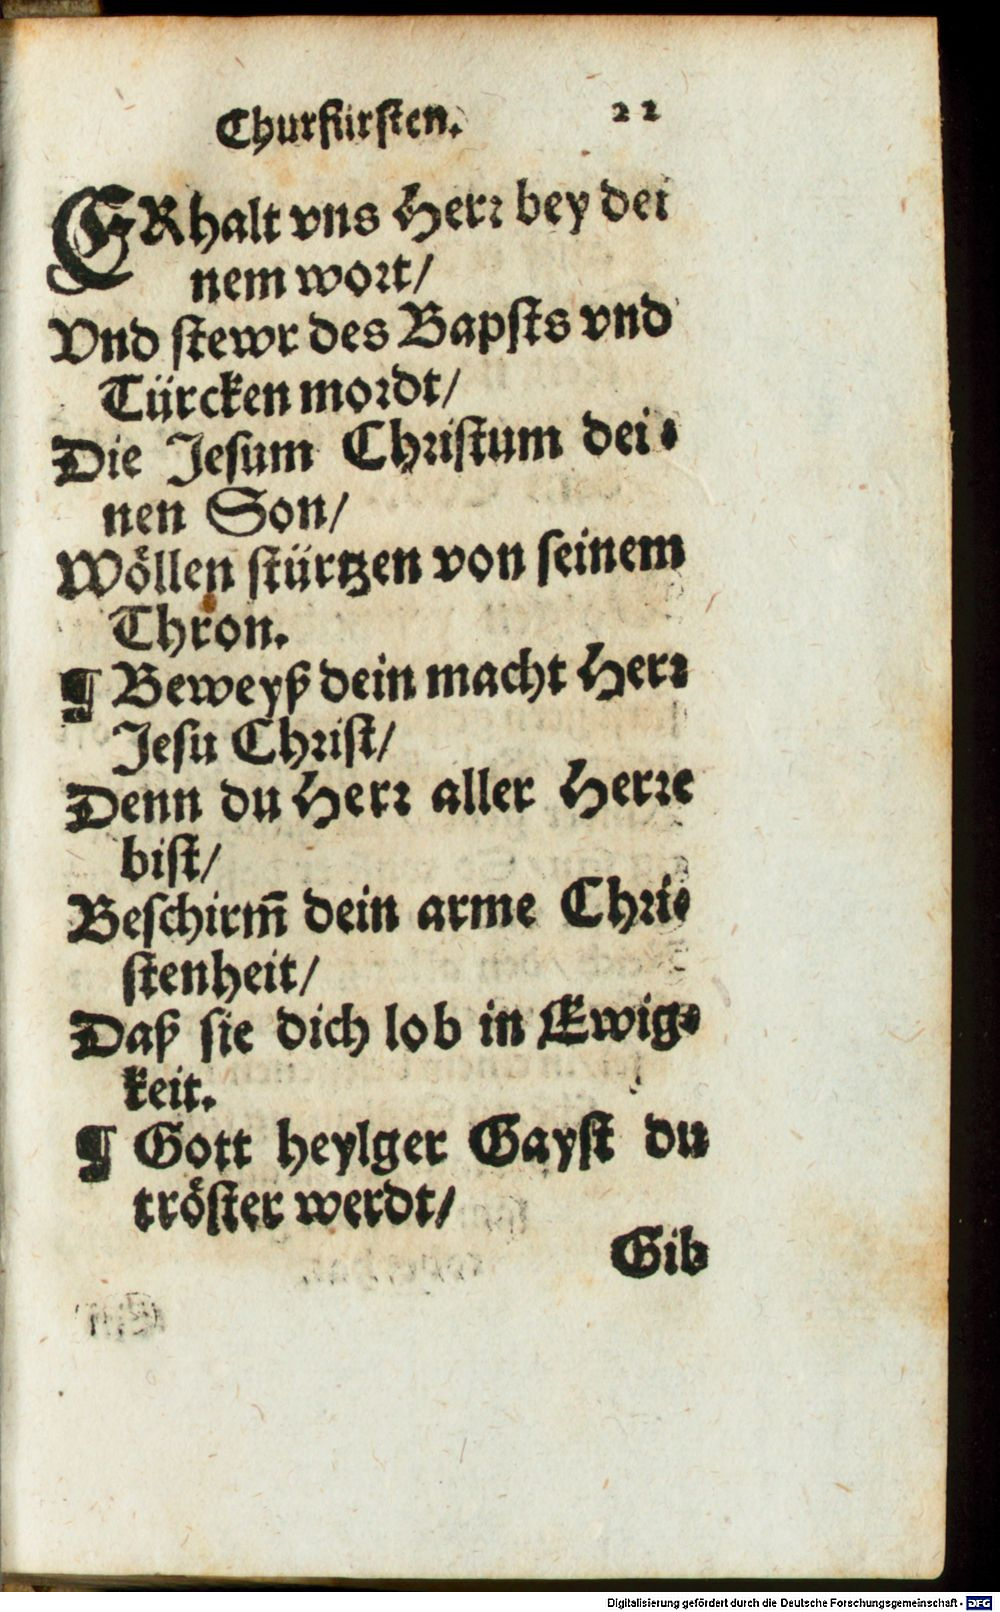 Churfürsten. 22
ERhalt vns Herr bey dei
nem wort/
Vnd stewr des Bapsts vnd
Türcken mordt/
Die Jesum Christum dei-
nen Son/
Wöllen stürtzen von seinem
Thron.
¶ Beweyß dein macht Herr
Jesu Christ/
Denn du Herr aller Herre
bist/
Beschirm̄ dein arme Chri-
stenheit/
Daß sie dich lob in Ewig-
keit.
¶ Gott heylger Gayst du
tröster werdt/
Gib
Digitalisierung gefördert durch die Deutsche Forschungsgemeinschaft - DFG